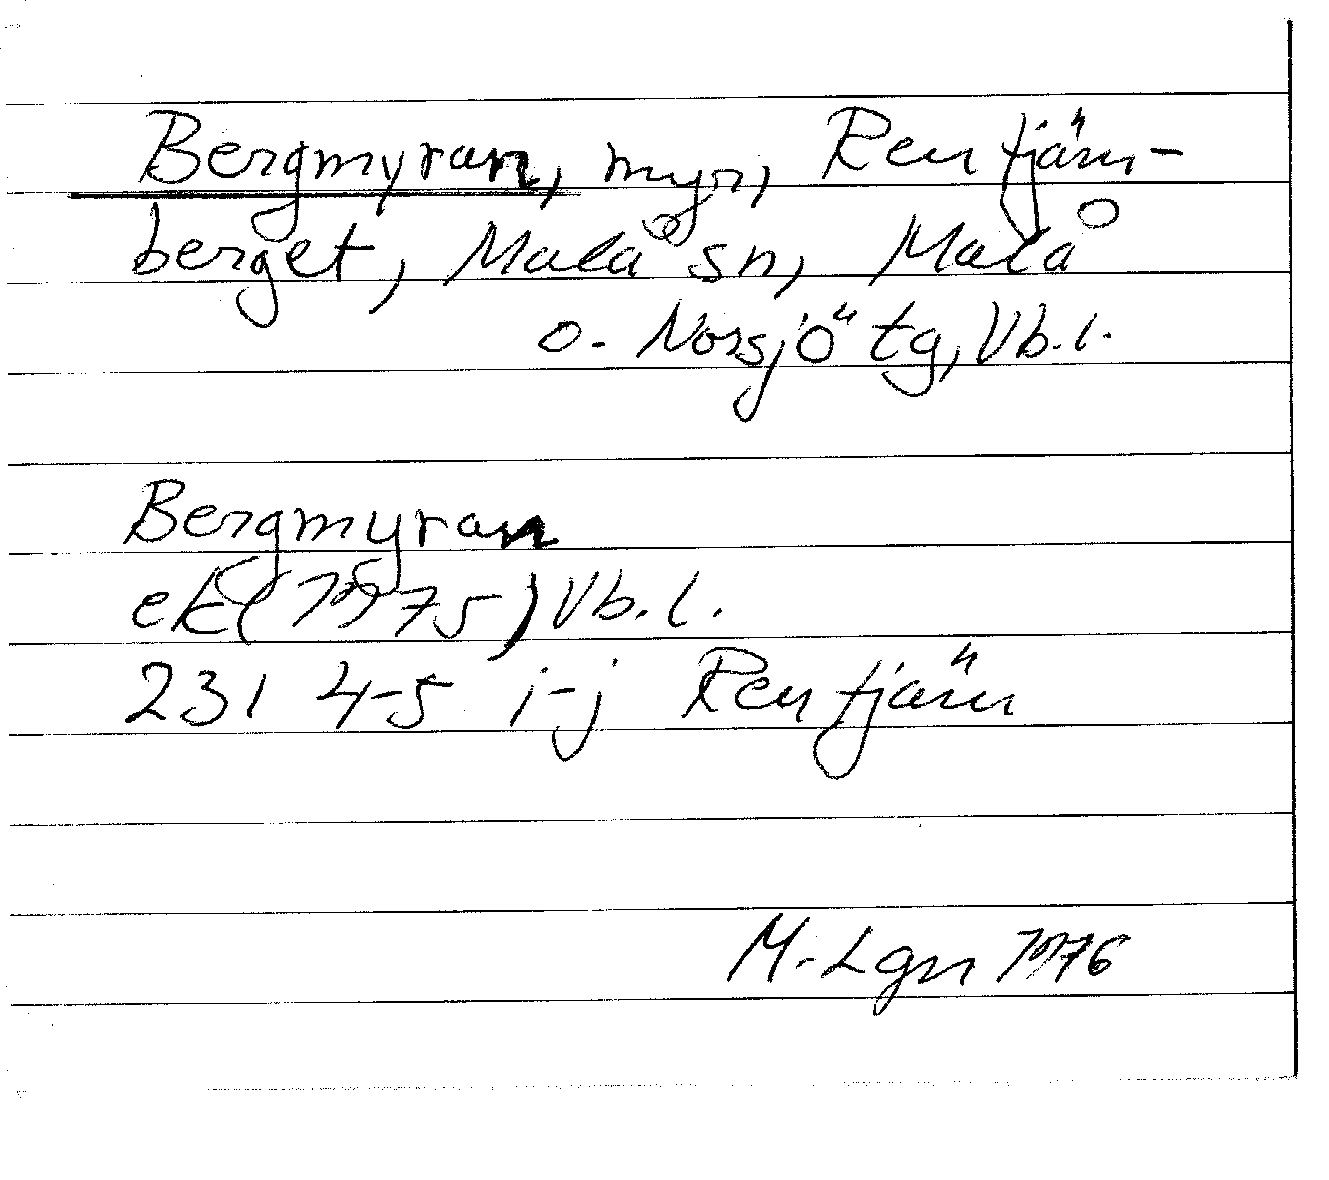 Bergmyran, myr, Rentjärn-
berget, Malå sn, Malå
o. Norsjö tg, Vb.l.
Bergmyran
ek (1975) Vb.l.
231 4-5 i-j Rentjärn
M. Lgn 1976